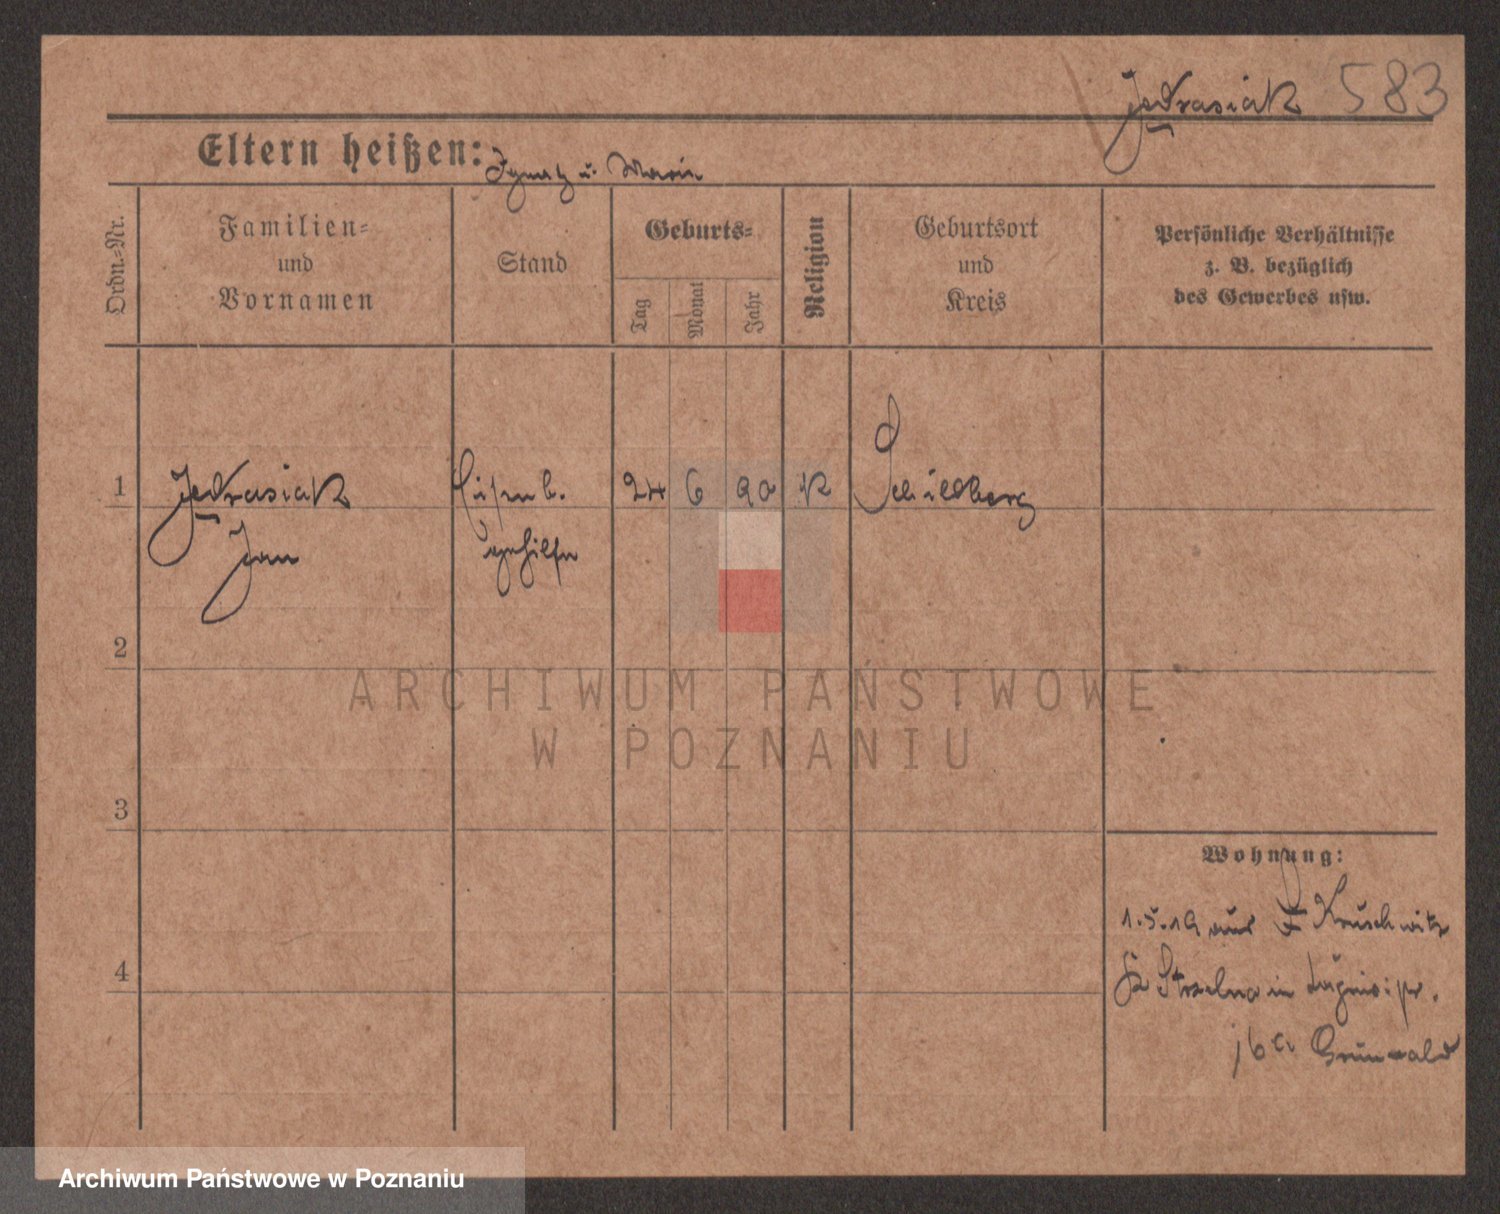 Jedrasiak 583
Eltern heißen: Ignatz u. Marie
Ordn.=Nr.
Familien=
und
Vornamen
Stand
Geburts=
Tag
Monat
Jahr
Religion
Geburtsort
und
Kreis
Persönliche Verhältnisse
z. B. bezüglich
des Gewerbes usw.
1
Jedrasiak
Jan
Eisenb.
gehilfe
24 6 90 K
Schildberg
2
3
4
Wohnung:
1.5.19 aus Kruschwitz
Strelno in
Grünwald
ARCHIWUM PAŃSTWOWE
W POZNANIU
Archiwum Państwowe w Poznaniu